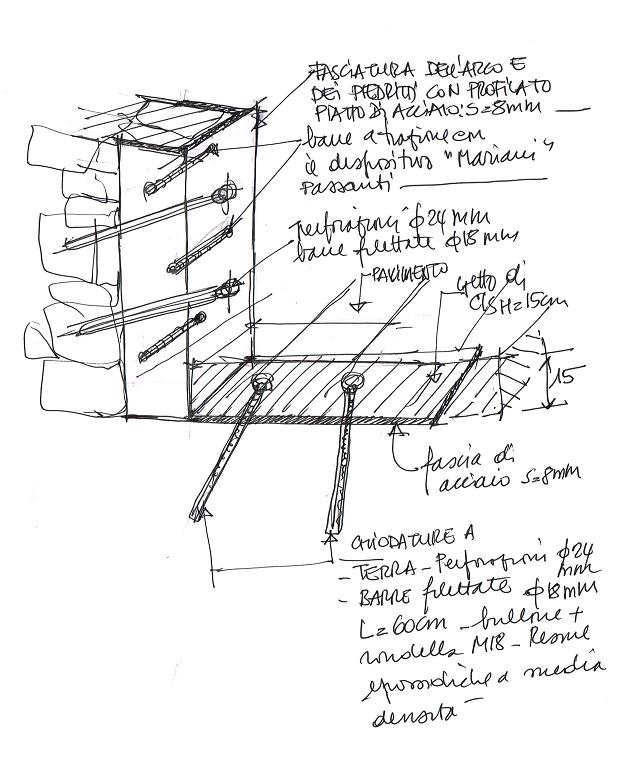 FASCIATURA DELL'ARCO E
DEI PIEDRITTI CON PROFILATO
PIATTO DI ACCIAIO S=8mm
barre a trafione con
il dispositivo "Mariani"
passanti
perforazioni φ24mm
barre filettate φ18mm
PAVIMENTO
getto di
Cls H=15cm
15
fascia di
acciaio S=8mm
CHIODATURE A
- TERRA - Perforazioni φ24
mm
- BARRE filettate φ18mm
L=60cm - bullone +
rondella M18 - Resine
epossidiche a media
densità